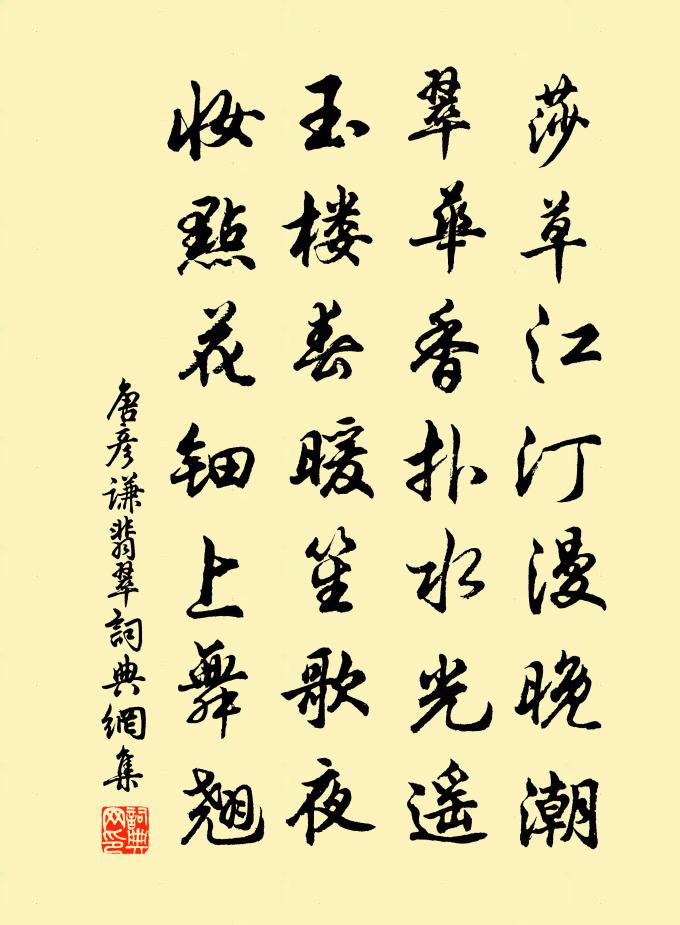 莎草江汀漫晚潮
翠華香扑水光遥
玉楼春暖笙歌夜
妆點花钿上舞翘
唐彦谦翡翠詞典網集
詞典網印